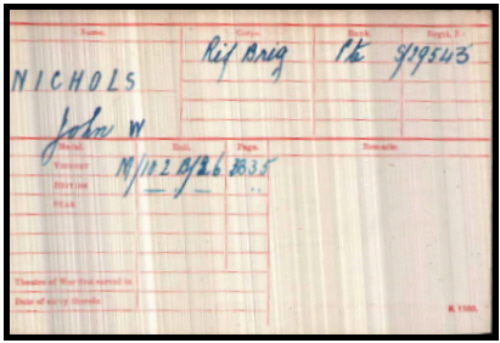 Name. Corps. Rank. Regtl. No.
Rif Brig Pte S/29543
NICHOLS
John W
Medal. Roll. Page. Remarks.
VICTORY M/102 B/26 3835
BRITISH — „ — „
STAR
Theatre of War first served in
Date of entry therein
K. 1380.